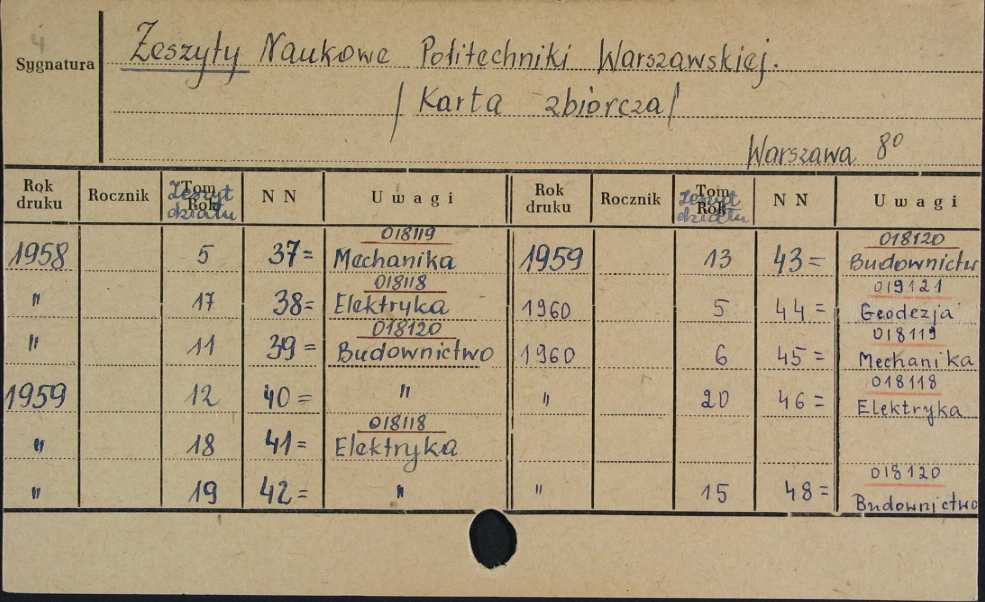 4
Sygnatura
Zeszyty Naukowe Politechniki Warszawskiej.
/ Karta zbiorcza /
Warszawa 8°
Rok druku Rocznik Tom Rok Zeszyt działu N N Uwagi Rok druku Rocznik Tom Rok Zeszyt działu N N Uwagi
018119 018120
1958 5 37= Mechanika 1959 13 43= Budownictw
018118 019121
" 17 38= Elektryka 1960 5 44= Geodezja
018120 018119
" 11 39= Budownictwo 1960 6 45= Mechanika
018118
1959 12 40= " " 20 46= Elektryka
018118
" 18 41= Elektryka
018120
" 19 42= " " 15 48= Budownictwo